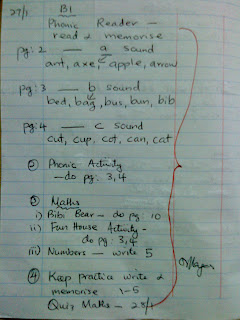 27/1 B1
Phonic Reader —
read & memorise
pg: 2 — a sound
ant, axe, apple, arrow
pg: 3 — b sound
bed, bag, bus, bun, bib
pg: 4 — c sound
cut, cup, cot, can, cat
② Phonic Activity
— do pg: 3, 4
③ Maths
i) Bibi Bear — do pg 10
ii) Fun House Activity —
do pg: 3, 4
iii) Numbers — write 5
④ Keep practice write &
memorise 1–5
Quiz Maths —